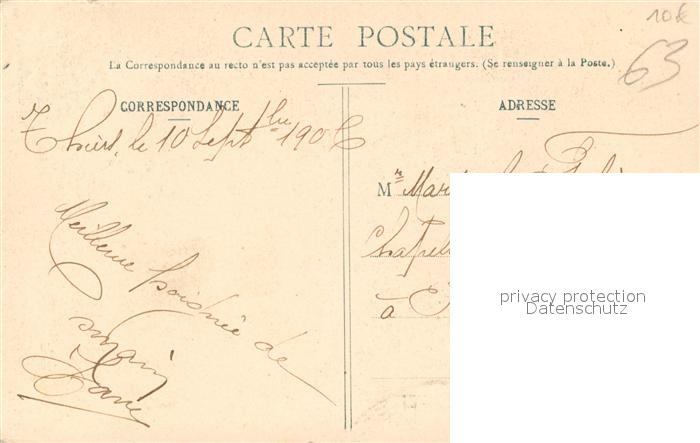 10€
63
CARTE POSTALE
La Correspondance au recto n'est pas acceptée par tous les pays étrangers. (Se renseigner à la Poste.)
CORRESPONDANCE
ADRESSE
Thiers, le 10 Septbre 190
Meilleure poignée de
main
Mr
à
privacy protection
Datenschutz